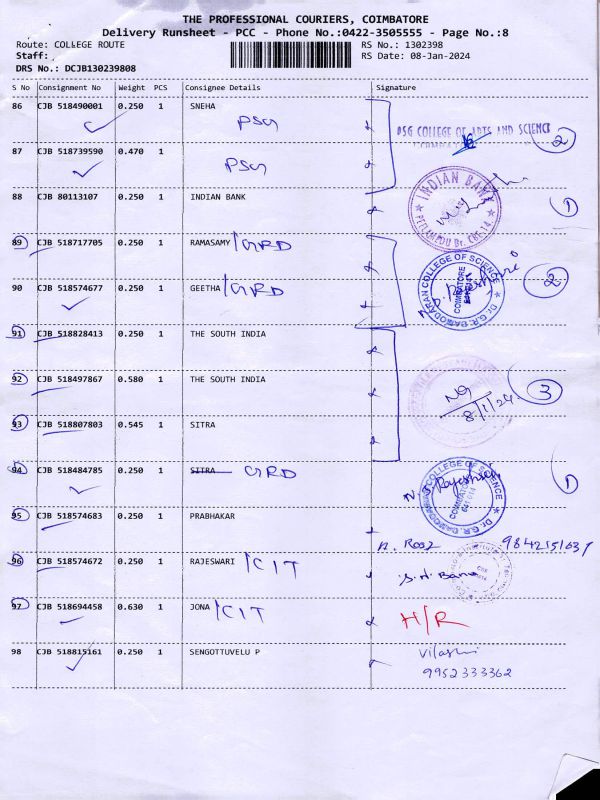 THE PROFESSIONAL COURIERS, COIMBATORE
Delivery Runsheet - PCC - Phone No.:0422-3505555 - Page No.:8
Route: COLLEGE ROUTE RS No.: 1302398
Staff: RS Date: 08-Jan-2024
DRS No.: DCJB130239808
S No Consignment No Weight PCS Consignee Details Signature
86 CJB 518490001 0.250 1 SNEHA
PSG PSG COLLEGE OF ARTS AND SCIENCE 2
87 CJB 518739590 0.470 1
PSG
88 CJB 80113107 0.250 1 INDIAN BANK INDIAN BANK 1
89 CJB 518717705 0.250 1 RAMASAMY/GRD
90 CJB 518574677 0.250 1 GEETHA/GRD Dr.G.R. DAMODARAN COLLEGE OF SCIENCE COIMBATORE 2
91 CJB 518828413 0.250 1 THE SOUTH INDIA
92 CJB 518497867 0.580 1 THE SOUTH INDIA 3
8/1/24
93 CJB 518807803 0.545 1 SITRA
94 CJB 518484785 0.250 1 SITRA GRD Dr.G.R. DAMODARAN COLLEGE OF SCIENCE COIMBATORE 641 014 1
95 CJB 518574683 0.250 1 PRABHAKAR
96 CJB 518574672 0.250 1 RAJESWARI /CIT
97 CJB 518694458 0.630 1 JONA /CIT H/R
98 CJB 518815161 0.250 1 SENGOTTUVELU P
9952333362